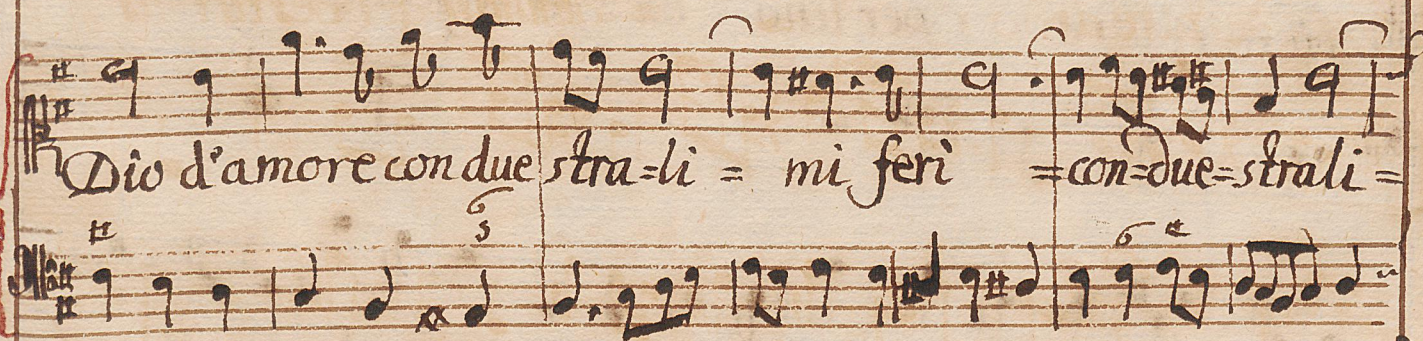 Dio d'amore con due stra=li = mi ferì =con=due=strali=
6
5 6